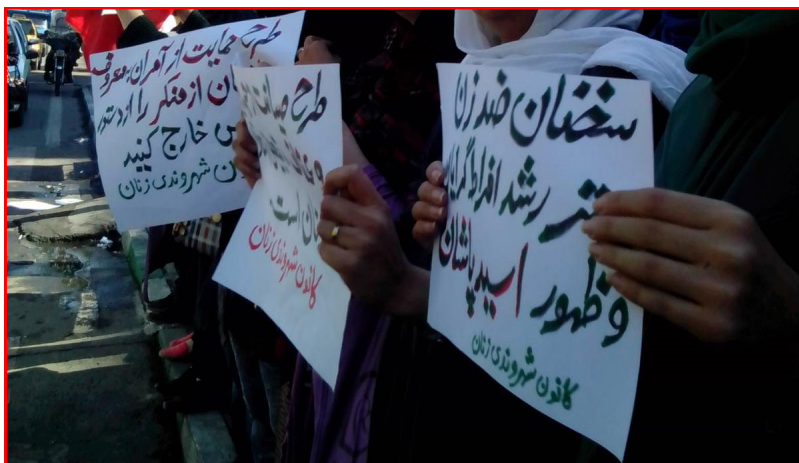 طرح حمایت از آمران بمعروف
از منکر را از دستور
خارج کنید
شهروندی زنان
طرح صیانت
است
کانون شهروندی زنان
سخنان ضد زن
رشد افراط گرایان
و ظهور اسید پاشان
کانون شهروندی زنان